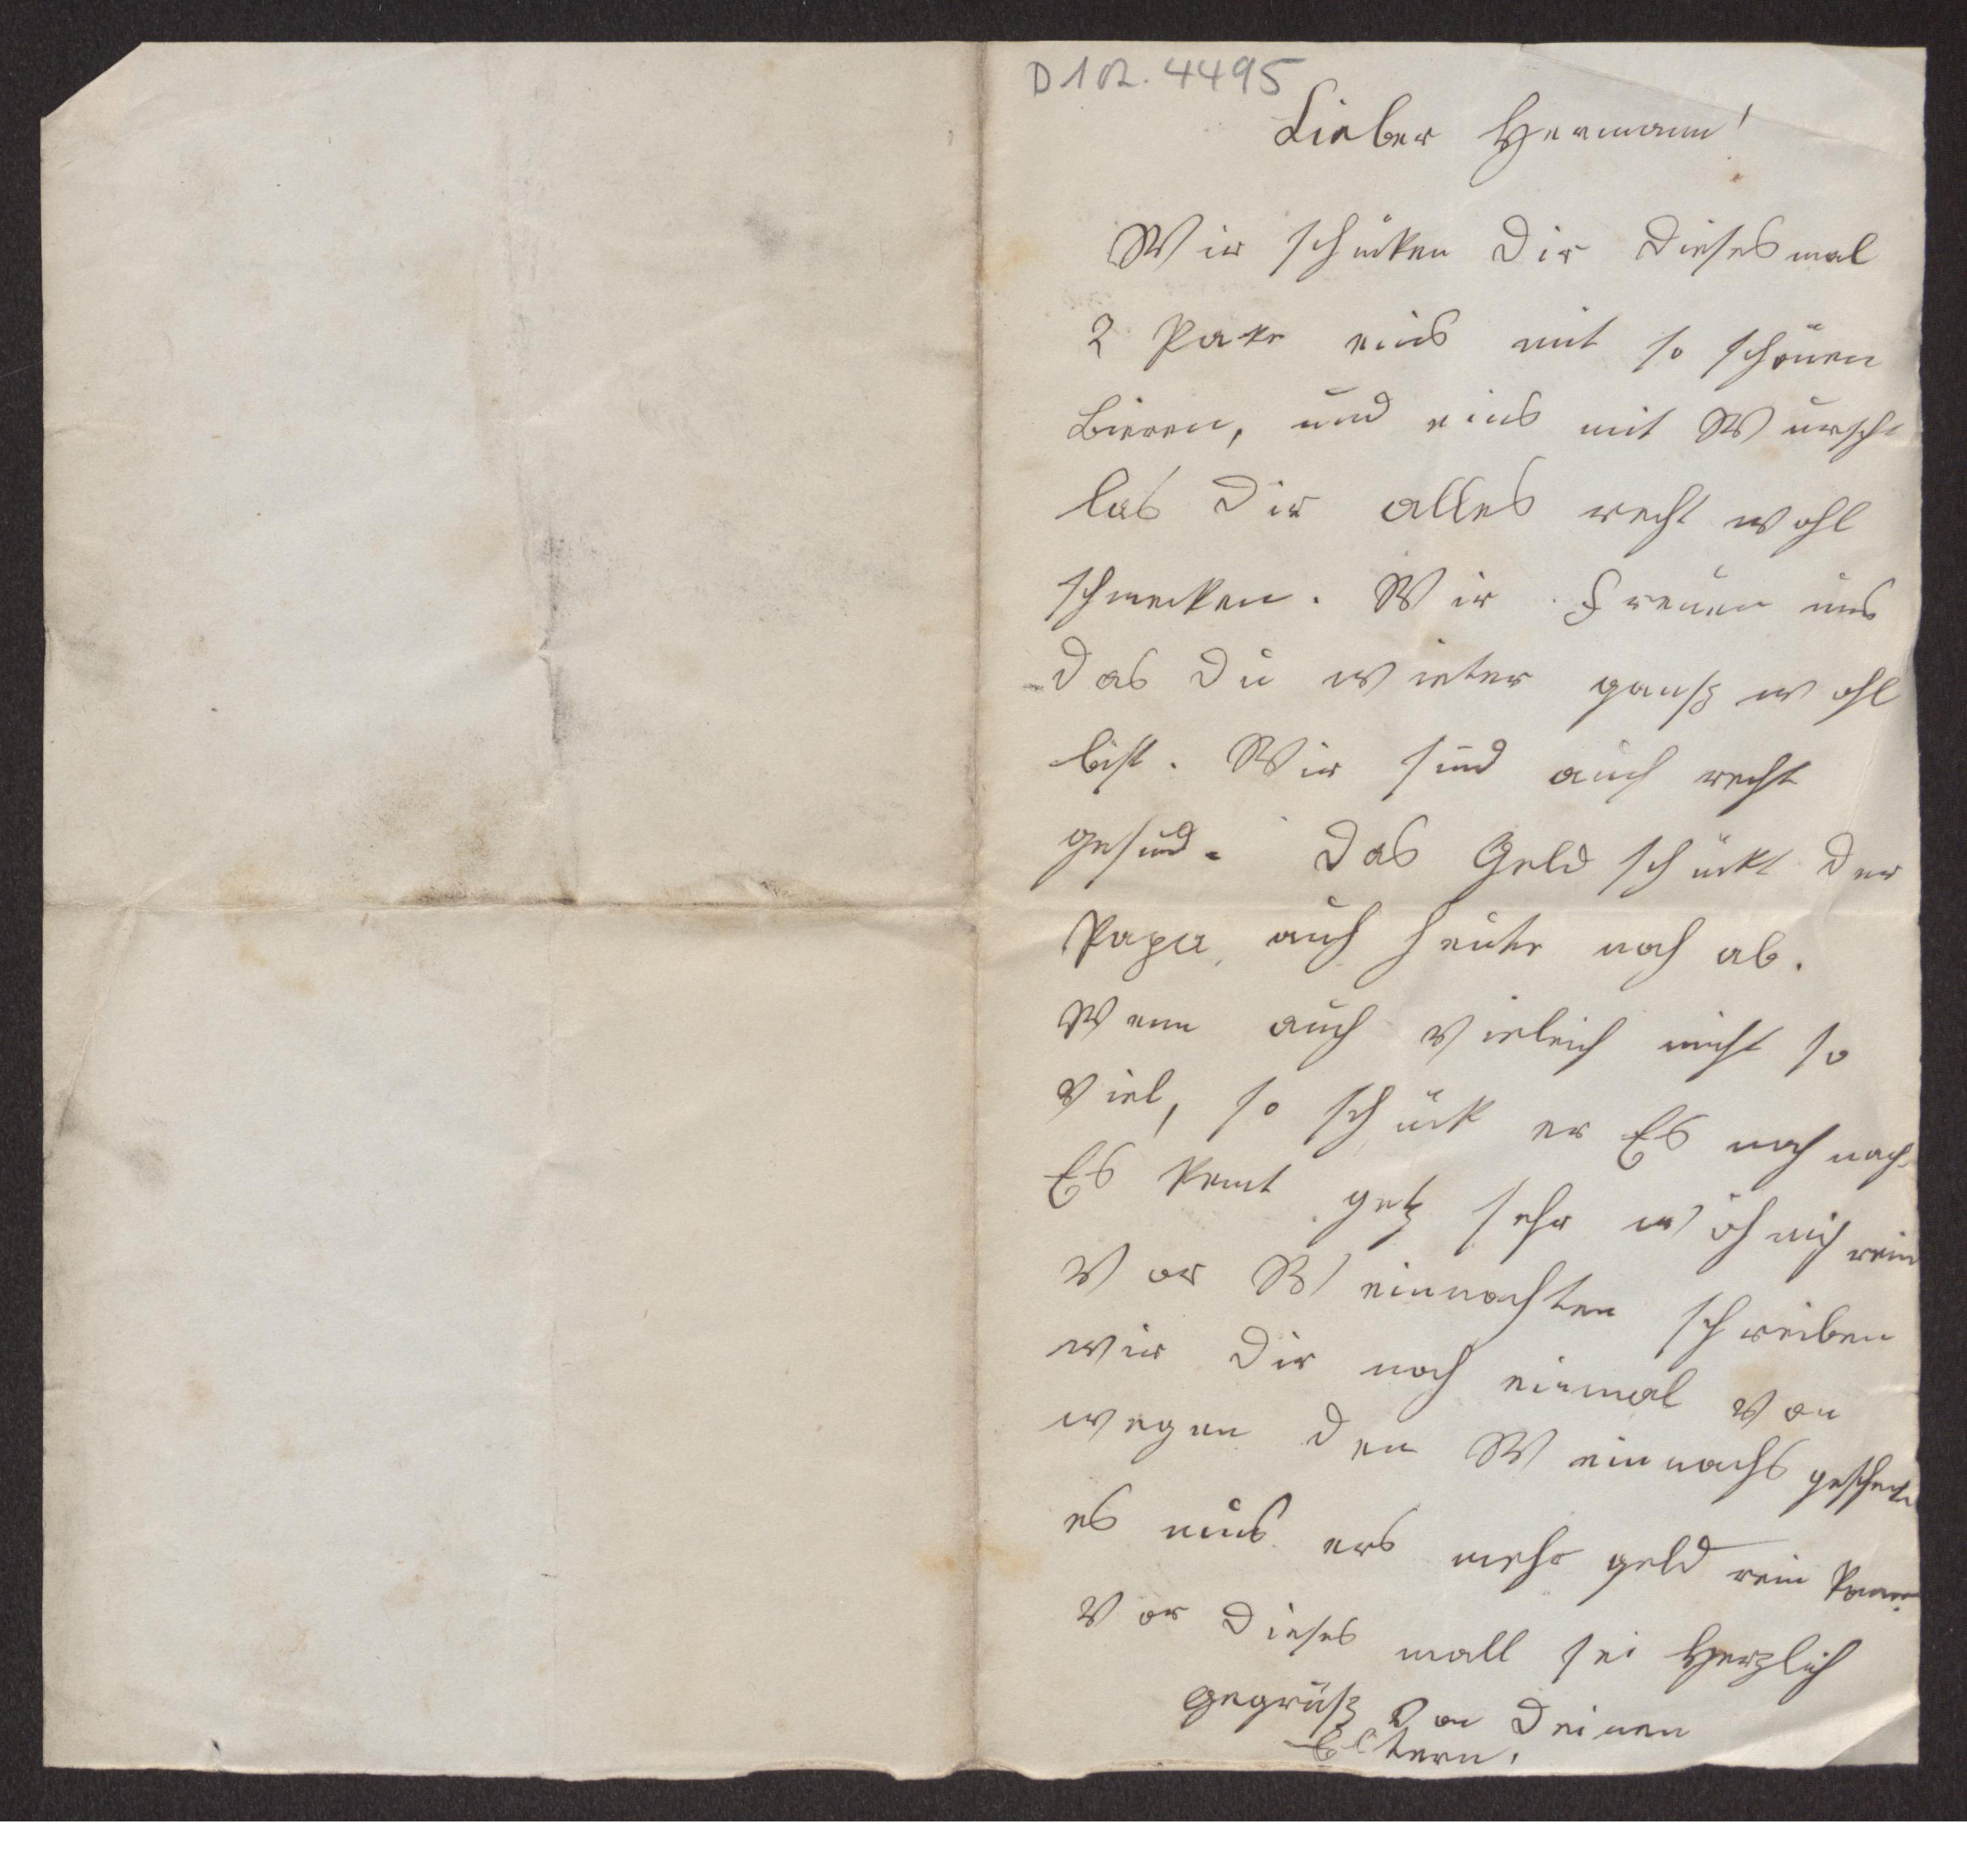 D 1 R. 4495
Lieber Hermann!
Wir schücken Dir Diesesmal
2 Pake eins mit so schönen
Bieren, und eins mit Wurscht
las Dir alles recht wohl
schmecken. Wir Freuen uns
Das Du wieter ganß wohl
bist. Wir sind auch recht
gesund. Das Geld schückt Der
Papa, auch heute noch ab.
Wenn auch Vieleich nicht so
Viel, so schück er Es noch nach
Es kemt getz sehr wöhnich rein
Vor Weinnachten schreiben
wir Dir noch einmal von
wegen Den Weinnachs geschenk
es mus ers mehr geld rein
Vor Dieses mall sei Herzlich
gegrüß Von Deinen
Eltern.